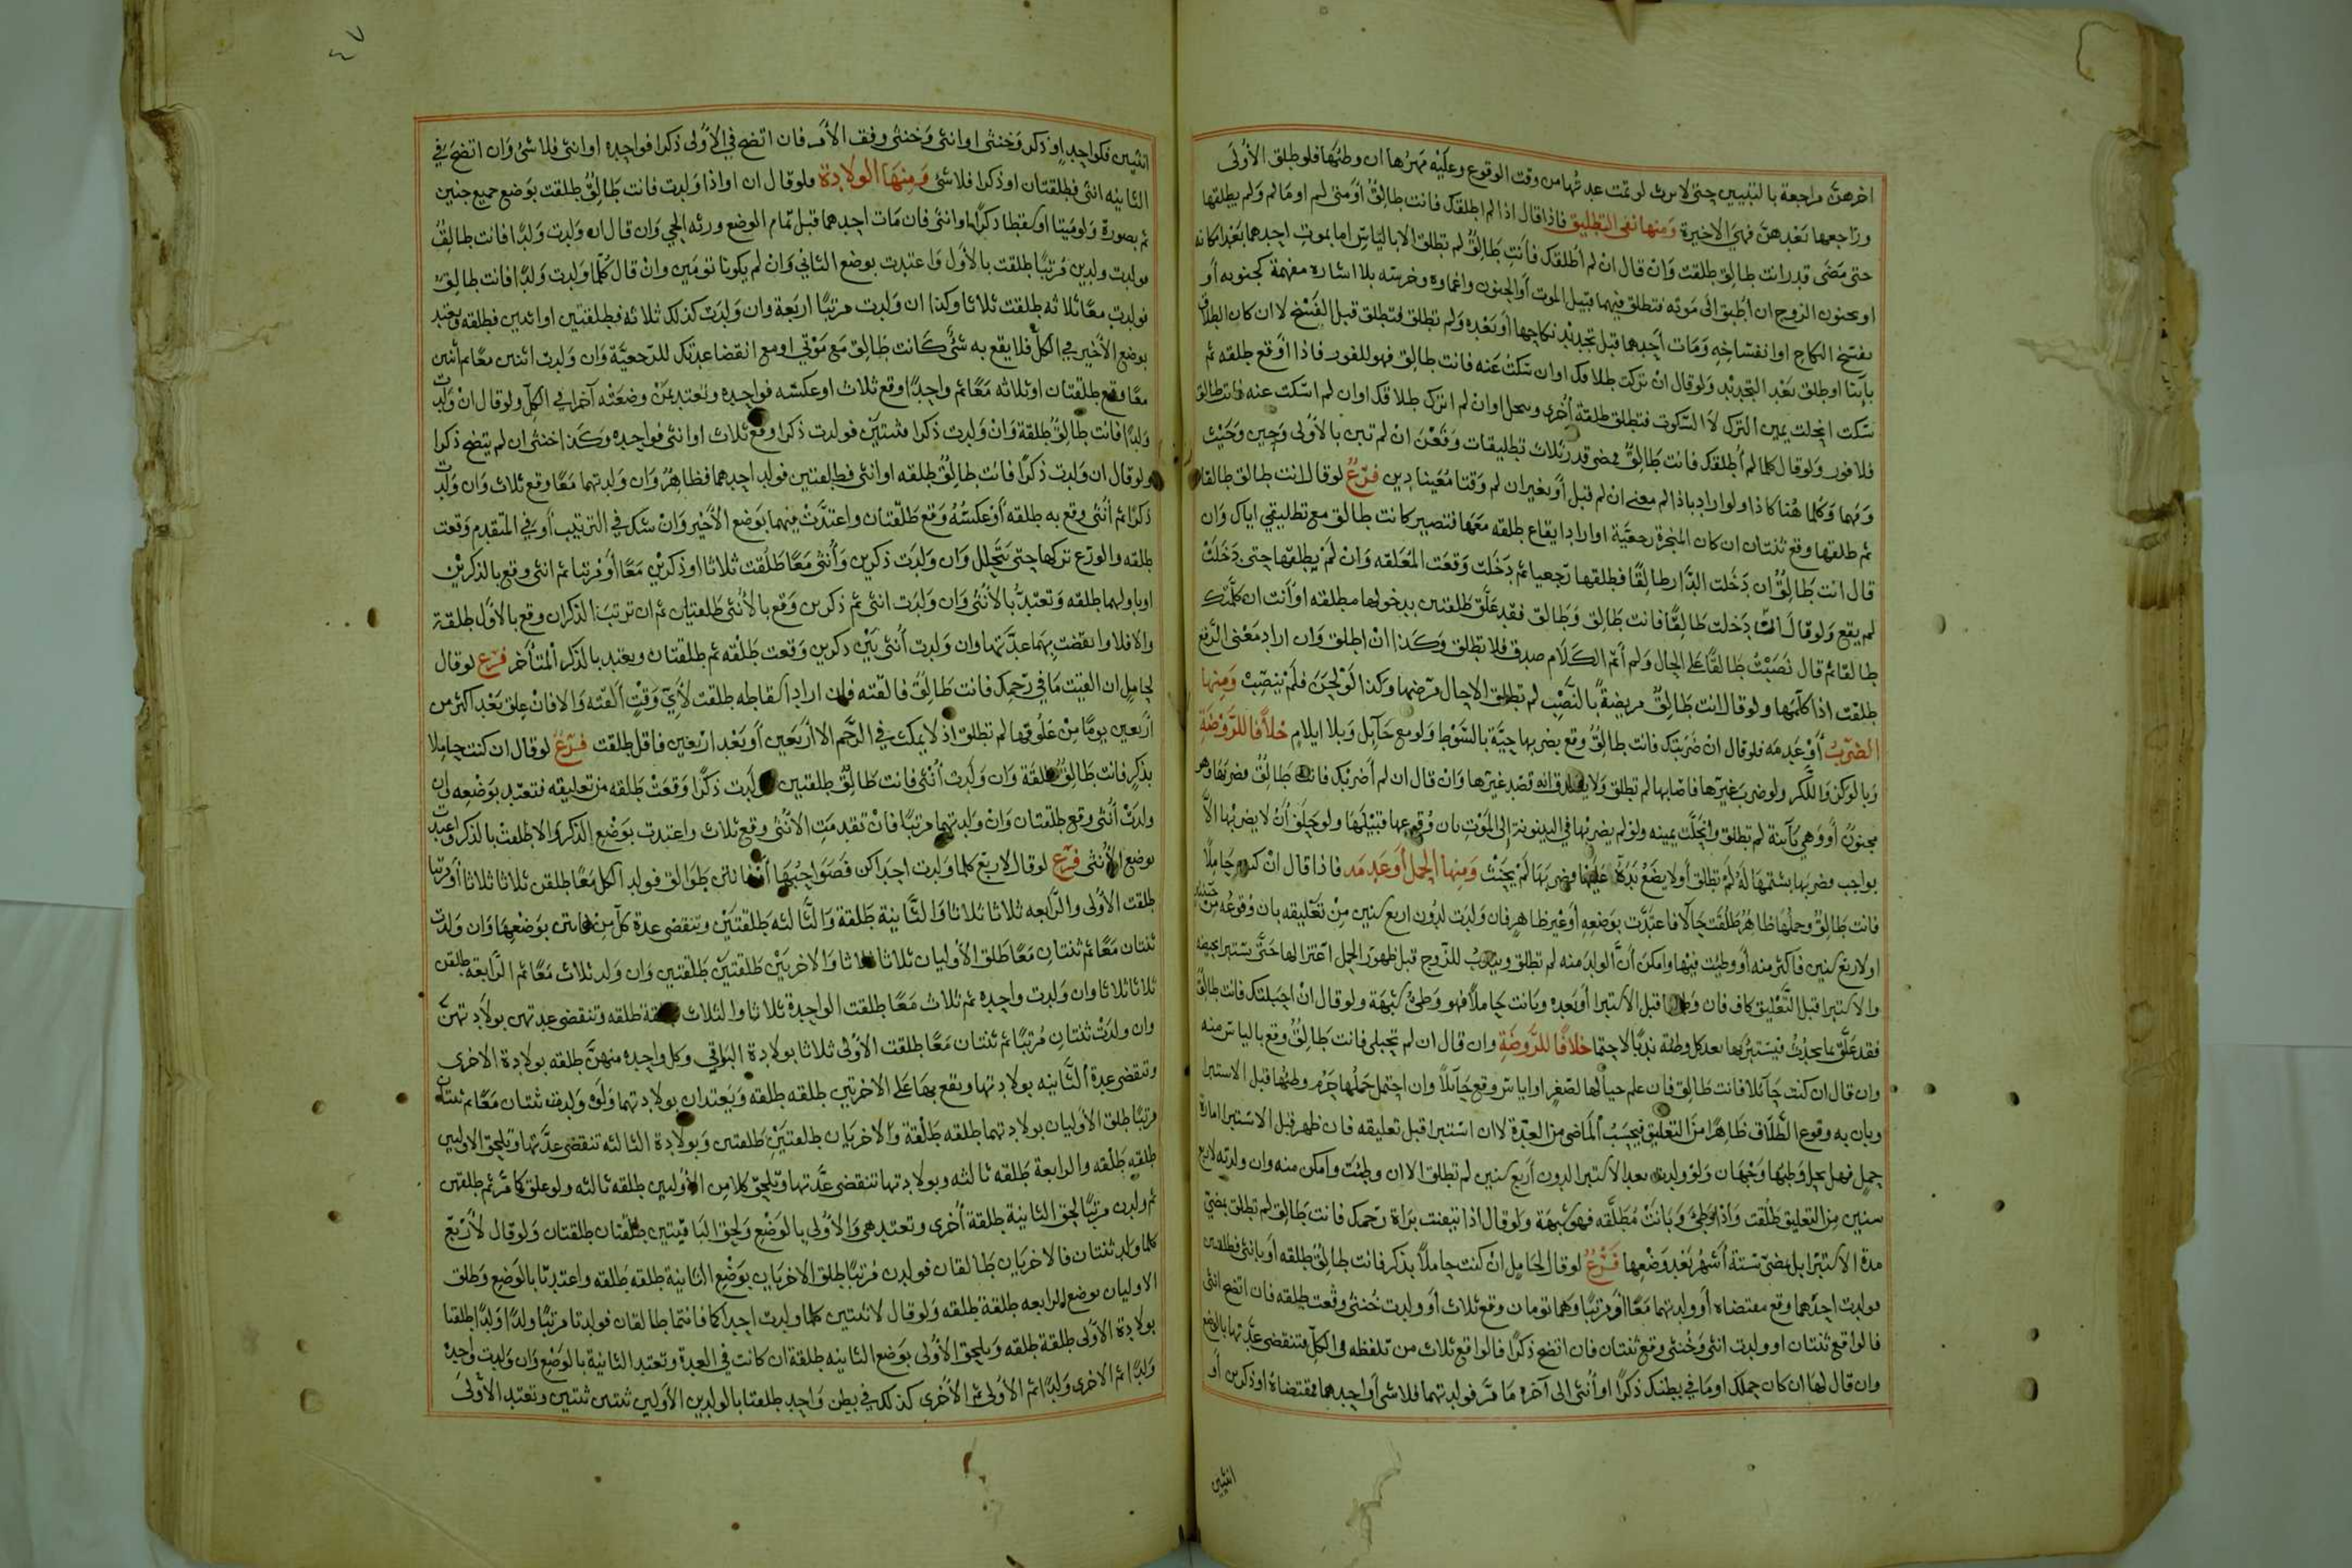 اخرهن مراجعة بالتبيين حتى لو تمت عدتها من وقت الوقوع وعليه مهرها ان وطئها فلو طلق الأولى
وراجعها بعدهن فهي الاخيرة ومنها نفي التطليق فاذا قال اذا لم اطلقك فانت طالق او متى لم او ما لم ولم يطلقها
حتى مضى قدر انت طالق طلقت وان قال ان لم اطلقك فانت طالق لم تطلق الا بالياس اما بموت احدهما بعد امكانه
او بجنون الزوج ان اطبق الى موته فتطلق فيهما قبيل الموت او الجنون واغماوه وخرسه بلا اشاره مفهمة كجنونه او
بفسخ النكاح او انفساخه ومات احدهما قبل تجديد نكاحها او بعده ولم تطلق فتطلق قبل الفسخ لا ان كان الطلاق
باينا او طلق بعد التجديد ولو قال ان تركت طلاقك او ان سكت عنه فانت طالق فهو للفور فاذا اوقع طلقه ثم
سكت انحلت يمين الترك لا السكوت فتطلق طلقة اخرى وينحل او ان لم اترك طلاقك او ان لم اسكت عنه فانت طالق
فلا فور ولو قال كلما لم اطلقك فانت طالق فمضى قدر ثلاث تطليقات وقعن ان لم تبن بالأولى وحين وحيث
ومهما وكلما هنا كاذا ولو اراد باذا لم معنى ان لم قبل او بغير ان لم وقتا معينا دين فرع لو قال انت طالق طالقا
ثم طلقها وقع ثنتان ان كان المنجزة رجعية او اراد ايقاع طلقه معها فتصير كانت طالق مع تطليقي اياك وان
قال انت طالق ان دخلت الدار طالقا فطلقها رجعيا ثم دخلت وقعت المعلقه وان لم يطلقها حتى دخلت
لم يقع ولو قال انت دخلت طالقا فانت طالق وطالق فقد علق طلقتين بدخولها مطلقه او انت ان كلمتك
طالقا ثم قال نصبت طالقا على الحال ولم أتم الكلام صدق فلا تطلق وكذا ان اطلق وان اراد معنى الرفع
طلقت اذا كلمها ولو قال انت طالق مريضة بالنصب لم تطلق الا حال مرضها وكذا لو لحن فلم ينصب ومنها
الضرب أو عدمه فلو قال ان ضربتك فانت طالق وقع بضربها حية بالسوط ولو مع حايل وبلا ايلام خلافا للروضة
وبالوكز واللكز ولو ضرب غيرها فاصابها لم تطلق ولا يصدق انه قصد غيرها وان قال ان لم اضربك فانت طالق فضربها وهو
مجنون أو وهي باينة لم تطلق وانحلت يمينه ولو لم يضربها في البينونة الى الموت بان وقوعها قبيلها ولو حلف أن لا يضربها الا
بواجب فضربها بشتمها له لم تطلق او لا يضع يده عليها فضربها لم يحنث ومنها الحمل أو عدمه فاذا قال ان كنت حاملا
فانت طالق وحملها ظاهر طلقت حالا فاعتدت بوضعه أو غير ظاهر فان ولدت لدون اربع سنين من تعليقه بان وقوعه من حينئذ
او لاربع سنين فاكثر منه أو ووطئت فيها وامكن أن الولد منه لم تطلق ويندب للزوج قبل ظهور الحمل اعتزالها حتى يستبرا بحيضه
والاستبرا قبل التعليق كاف فان وطئها قبل الاستبرا أو بعده وبانت حاملا فهو وطئ شبهة ولو قال ان احبلتك فانت طالق
فقد علق بما يحدث فيستبرئها بعد كل وطئه ندبا لا حتما خلافا للروضة وان قال ان لم تحبلي فانت طالق وقع بالياس منه
وان قال ان كنت حائلا فانت طالق فان علم حيالها لصغر او اياس وقع حالا وان احتمل حملها حرم وطئها قبل الاستبرا
وبان به وقوع الطلاق ظاهرا من التعليق فيحسب الماضي من العدة لا ان استبرا قبل تعليقه فان ظهر قبل الاستبرا امارة
حمل فهل يحل وطئها وجهان ولو ولدت بعد الاستبرا لدون اربع سنين لم تطلق الا ان وطئت وامكن منه وان ولدته لاربع
سنين من التعليق طلقت واذا وطئ وبانت مطلقه فهو شبهة ولو قال اذا تيقنت براة رحمك فانت طالق لم تطلق بمضي
مدة الاستبرا بل بمضي ستة أشهر بعد وضعها فرع لو قال لحامل ان كنت حاملا بذكر فانت طالق طلقه أو بانثى فطلقتين
فولدت احدهما وقع مقتضاه أو ولدتهما معا او مرتبا وهما توءمان وقع ثلاث أو ولدت خنثى وقعت طلقه فان اتضح انثى
فالواقع ثنتان او ولدت انثى وخنثى وقع ثنتان فان اتضح ذكرا فالواقع ثلاث من تلفظه في الكل فتنقضي عدتها بالوضع
وان قال لها ان كان حملك او ما في بطنك ذكرا او أنثى الى آخره ما مر فولدتهما فلا شي أو احدهما فمقتضاه او ذكرين أو
انثيين
٤٧
انثيين فكواحد او ذكر وخنثى او انثى وخنثى وقف الأمر فان اتضح في الأولى ذكرا فواحده او انثى فلا شئ وان اتضح في
الثانيه انثى فطلقتان او ذكرا فلا شئ ومنها الولادة فلو قال ان او اذا ولدت فانت طالق طلقت بوضع جميع جنين
تم بصورة ولو ميتا او سقطا ذكرا او انثى فان مات احدهما قبل تمام الوضع ورثه الحي وان قال ان ولدت ولدا فانت طالق
فولدت ولدين مرتبا طلقت بالأول واعتدت بوضع الثاني وان لم يكونا توءمين وان قال كلما ولدت ولدا فانت طالق
فولدت معا ثلاثه طلقت ثلاثا وكذا ان ولدت مرتبا اربعة وان ولدت كذلك ثلاثه فطلقتين او اثنين فطلقه وتعتد
بوضع الأخير في الكل فلا يقع به شئ كانت طالق مع موتي او مع انقضا عدتك للرجعية وان ولدت اثنين معا ثم اثنين
معا وقع طلقتان او ثلاثه معا ثم واحدا وقع ثلاث او عكسه فواحده وتعتد بمن وضعته آخرا في الكل ولو قال ان ولدت
ولدا فانت طالق طلقة وان ولدت ذكرا فثنتين فولدت ذكرا وقع ثلاث او انثى فواحده وكذا خنثى ان لم يتضح ذكرا
ولو قال ان ولدت ذكرا فانت طالق طلقه او انثى فطلقتين فولد احدهما فظاهر وان ولدتهما معا وقع ثلاث وان ولدت
ذكرا ثم أنثى وقع به طلقه أو عكسه وقع طلقتان واعتدت منهما بوضع الأخير وان شك في الترتيب أو في المتقدم وقعت
طلقه والورع تركها حتى تتحلل وان ولدت ذكرين وأنثى معا طلقت ثلاثا او ذكرين معا أو مرتبا ثم انثى وقع بالذكرين
او باولهما طلقه وتعتد بالأنثى وان ولدت انثى ثم ذكرين وقع بالأنثى طلقتان ثم ان ترتب الذكران وقع بالأول طلقة
والا فلا وانقضت بهما عدتها وان ولدت أنثى بين ذكرين وقعت طلقه ثم طلقتان وتعتد بالذكر المتأخر فرع لو قال
لحامل ان القيت ما في رحمك فانت طالق فالقته فان اراد اسقاطه طلقت لأي وقت ألقته والا فان علق بعد اكثر من
أربعين يوما من علوقها لم تطلق اذ لا يمكث في الرحم الا أربعين أو بعد اربعين فاقل طلقت فرع لو قال ان كنت حاملا
بذكر فانت طالق طلقة وان ولدت أنثى فانت طالق طلقتين فولدت ذكرا وقعت طلقه من تعليقه فتعتد بوضعه وان
ولدت أنثى وقع طلقتان وان ولدتهما مرتبا فان تقدمت الأنثى وقع ثلاث واعتدت بوضع الذكر والا طلقت بالذكر واعتدت
بوضع الأنثى فرع لو قال لاربع كلما ولدت احداكن فصواحبها طوالق فولدن الكل معا طلقن ثلاثا ثلاثا أو مرتبا
طلقت الأولى والرابعه ثلاثا ثلاثا والثانية طلقة والثالثه طلقتين وتنقضي عدة كل من هاتين بوضعها وان ولدت
ثنتان معا ثم ثنتان معا طلق الأوليان ثلاثا ثلاثا والاخريين طلقتين طلقتين وان ولد ثلاث معا ثم الرابعة طلقن
ثلاثا ثلاثا وان ولدت واحده ثم ثلاث معا طلقت الواحدة ثلاثا والثلاث طلقة طلقه وتنقضي عدتهن بولادتهن
وان ولدت ثنتان مرتبا ثم ثنتان معا طلقت الأولى ثلاثا بولادة البواقي وكل واحده منهن طلقه بولادة الاخرى
وتنقضي عدة الثانيه بولادتها ويقع بها على الاخرتين طلقه طلقه ويعتدان بولادتهما ولو ولدت ثنتان معا ثم ثنتان
مرتبا طلق الأوليان بولادتهما طلقه طلقة والاخريان طلقتين طلقتين وبولادة الثالثه تنقضي عدتها ويلحق الاوليين
طلقه طلقه والرابعة طلقه ثالثه وبولادتها تنقضي عدتها ويلحق كلا من الأوليين طلقه ثالثه ولو علق كما مر ثم طلقتين
ثم ولدن مرتبا لحق الثانية طلقة أخرى وتعتد هي والأولى بالوضع ولحق الباقيتين طلقتان طلقتان ولو قال لأربع
كلما ولد ثنتان فالاخريان طالقان فولدن مرتبا طلق الاخريان بوضع الثانية طلقه طلقه واعتدتا بالوضع وطلق
الاوليان بوضع الرابعه طلقة طلقه ولو قال لاثنتين كلما ولدت احداكما فانتما طالقان فولدتا مرتبا ولدا ولدا طلقتا
بولادة الأولى طلقة طلقه ويلحق الأولى بوضع الثانيه طلقة ان كانت في العدة وتعتد الثانية بالوضع وان ولدت واحدة
ولدا ثم الاخرى ولدا ثم الأولى ثم الأخرى كذلك في بطن واحد طلقتا بالولدين الأولين ثنتين ثنتين وتعتد الأولى